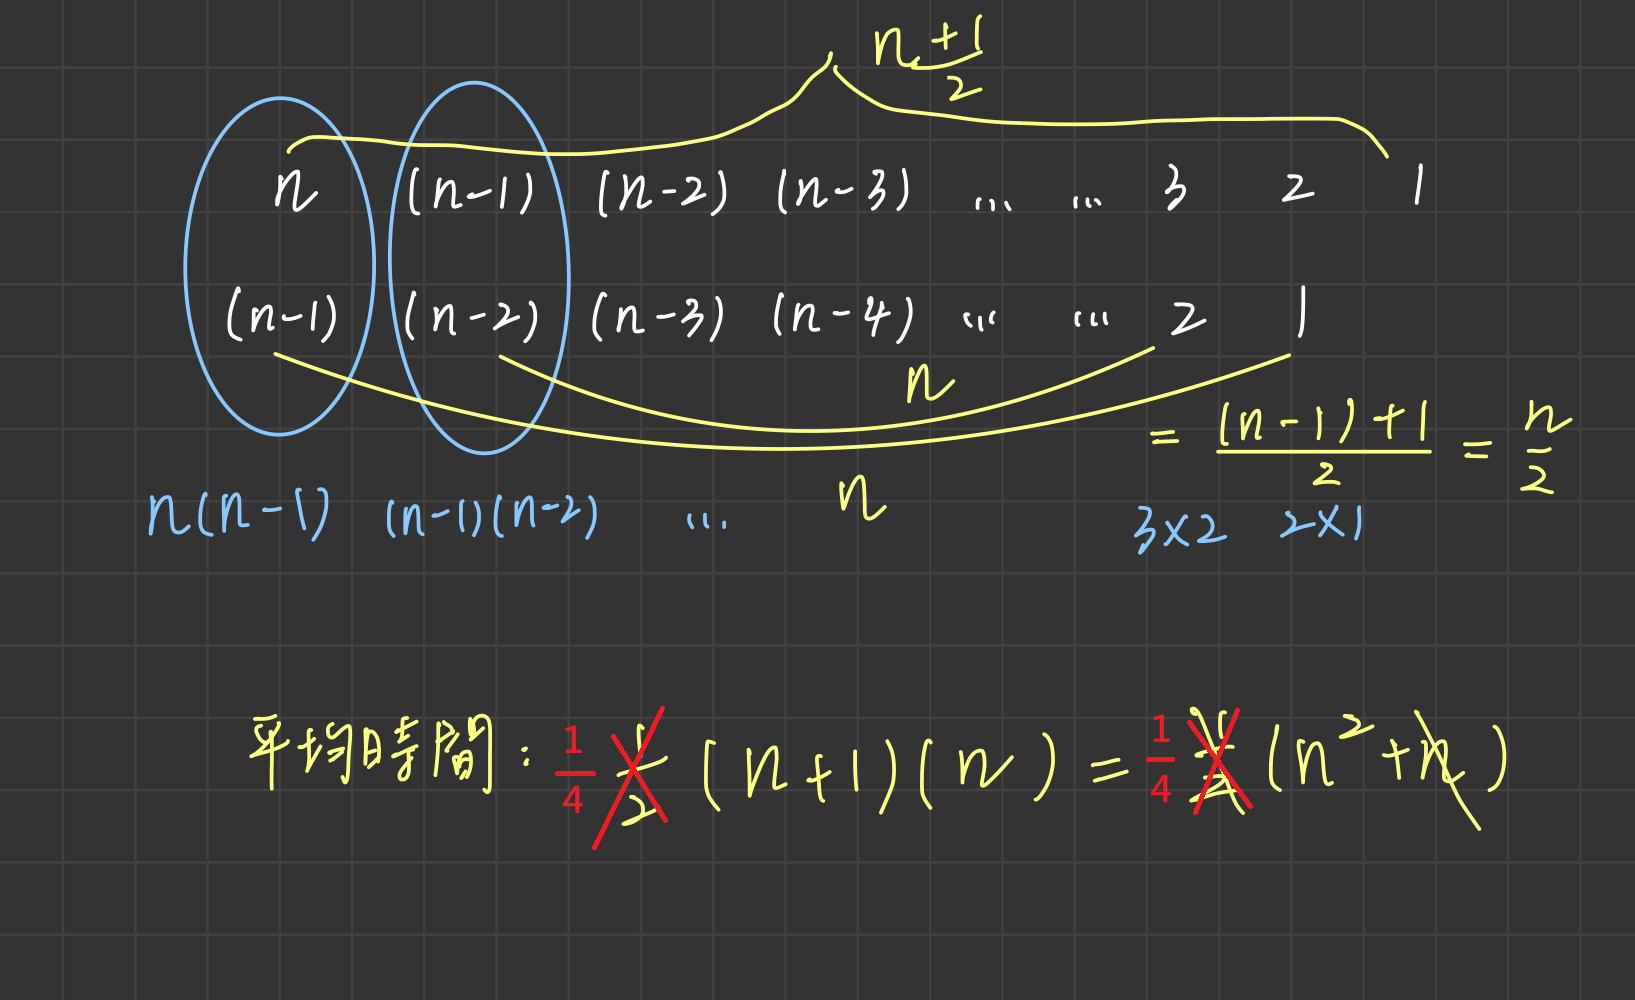 n+1/2
n (n-1) (n-2) (n-3) ... ... 3 2 1
(n-1) (n-2) (n-3) (n-4) ... ... 2 1
n
= (n-1)+1/2 = n/2
n
n(n-1) (n-1)(n-2) ... 3×2 2×1
平均時間: 1/4 1/2 (n+1)(n) = 1/4 1/2 (n²+n)